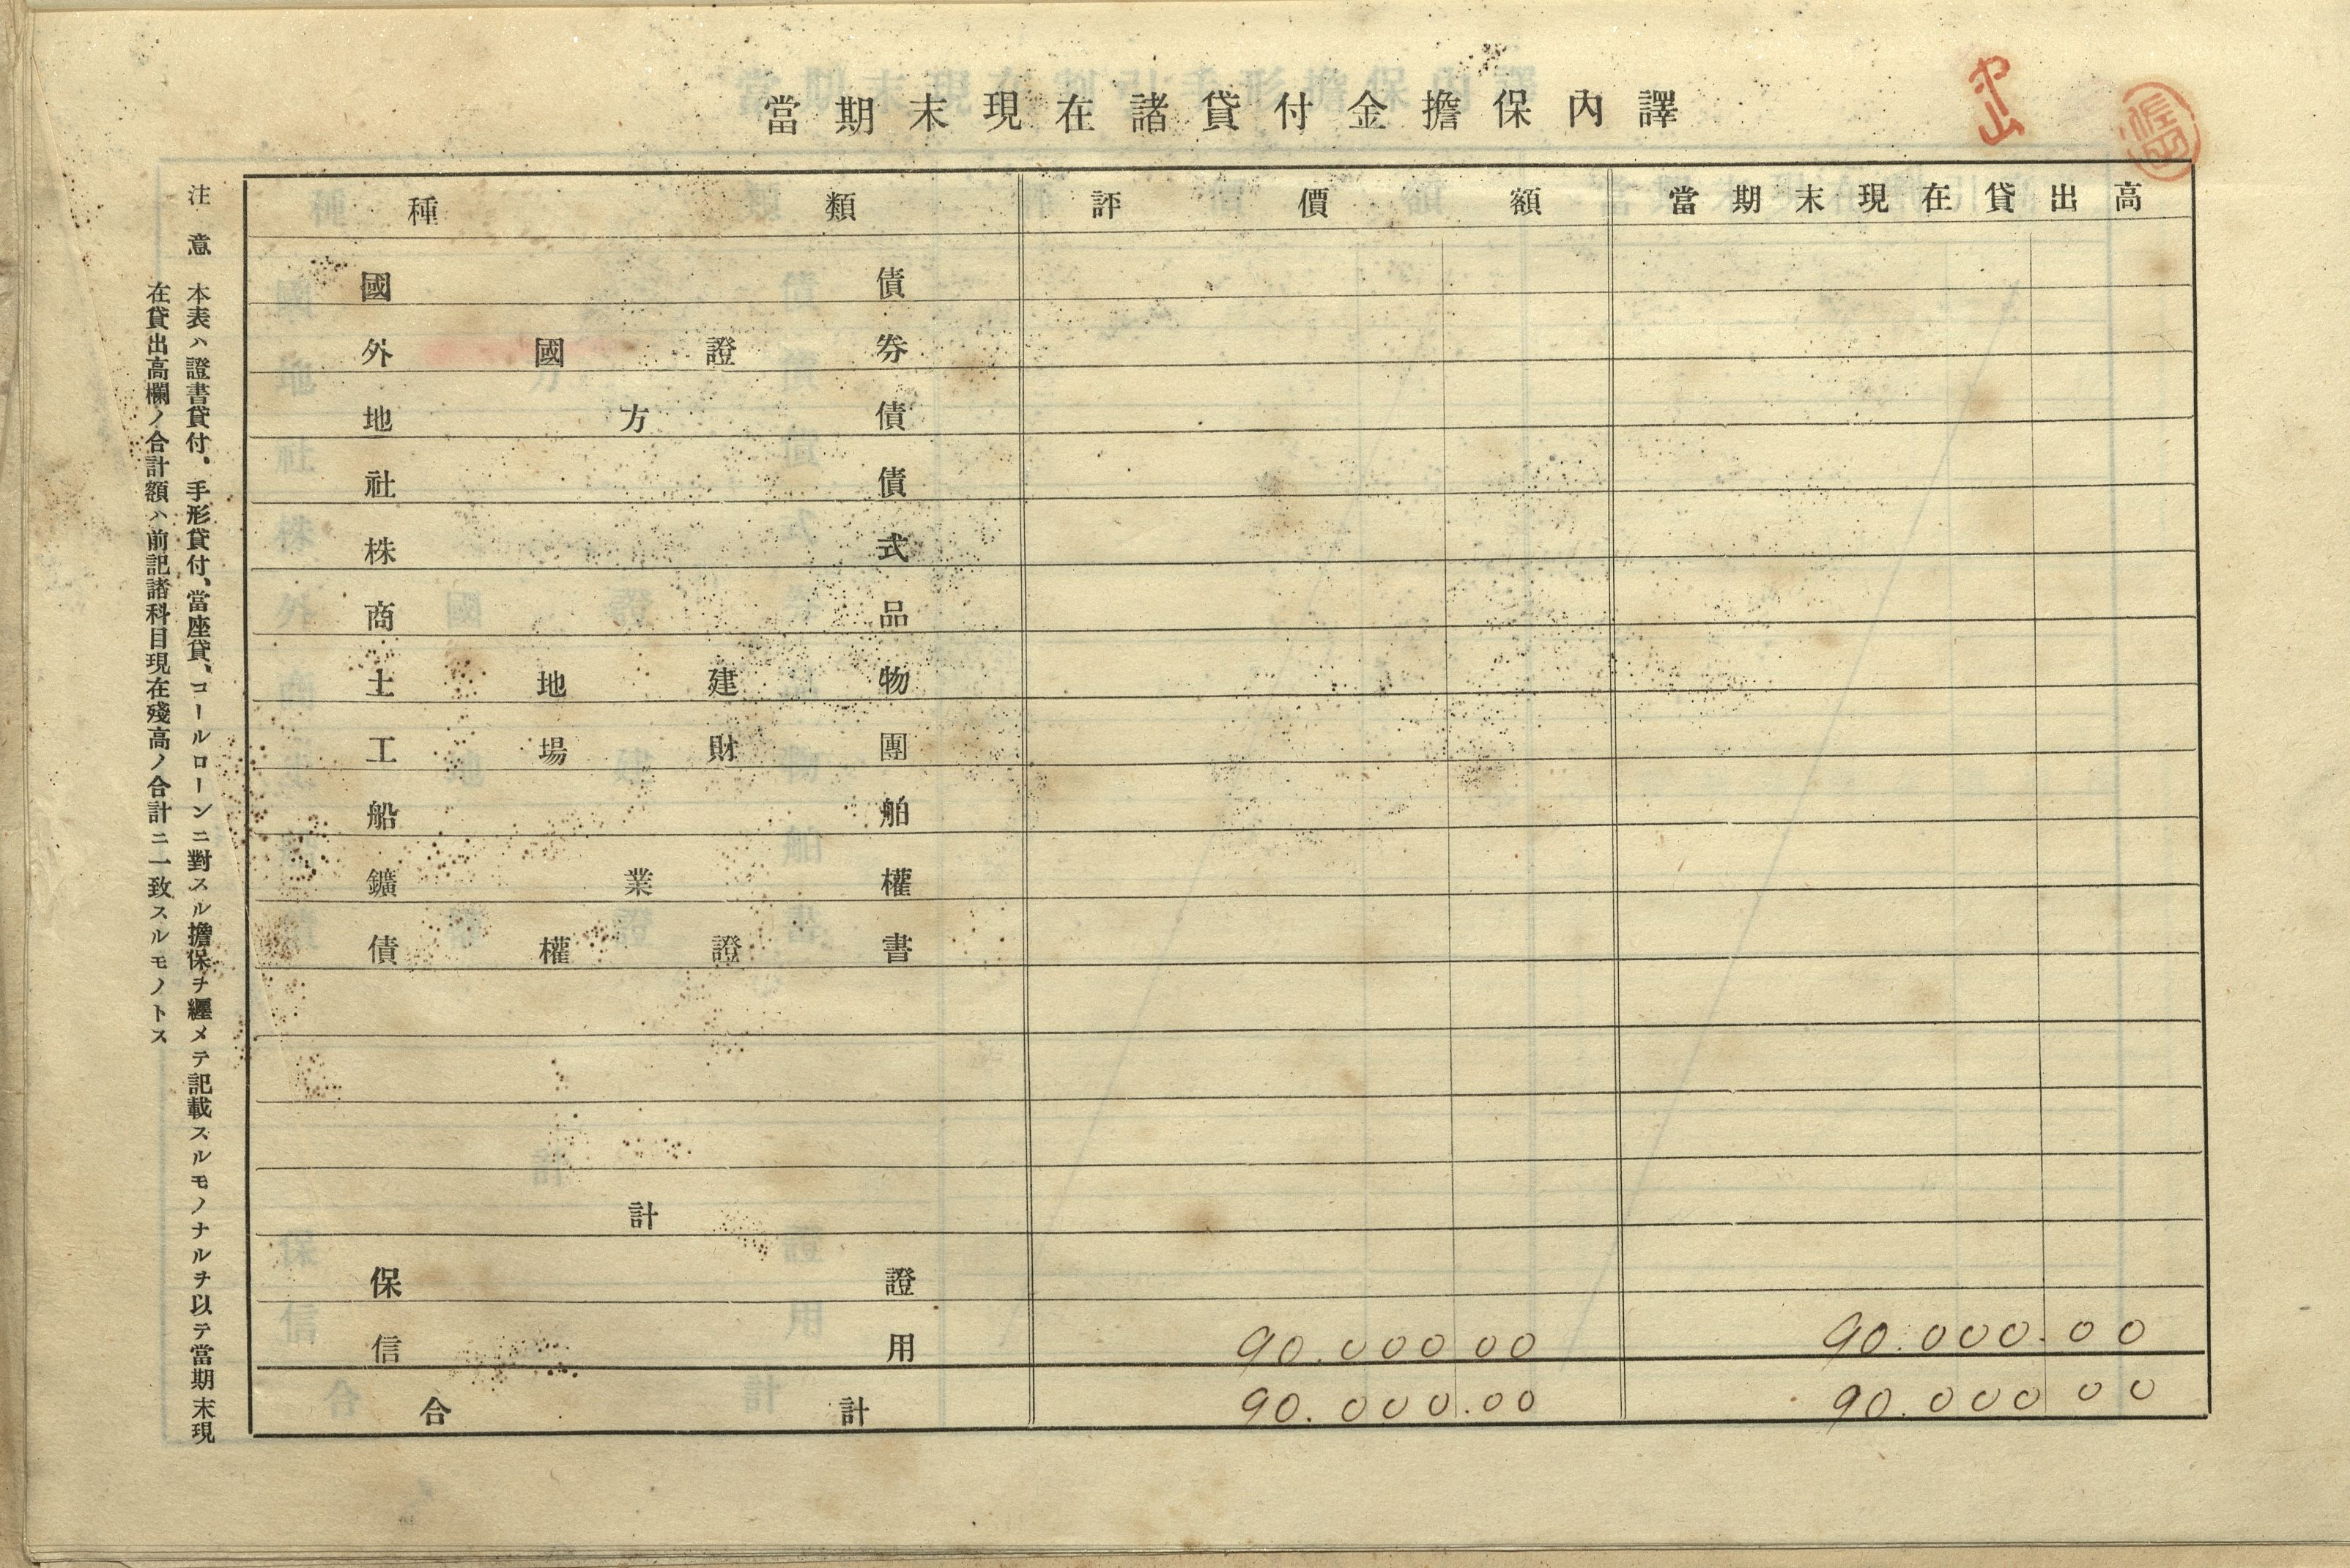 當期末現在諸貸付金擔保內譯
種類 評價額 當期末現在貸出高
國債
外國證券
地方債
社債
株式
商品
土地建物
工場財團
船舶
鑛業權
債權證書
計
保證
信用 90.000 00 90.000.00
合計 90.000.00 90.000 00
注意 本表ハ證書貸付、手形貸付、當座貸、コールローンニ對スル擔保ヲ纒メテ記載スルモノナルヲ以テ當期末現
在貸出高欄ノ合計額ハ前記諸科目現在殘高ノ合計ニ一致スルモノトス